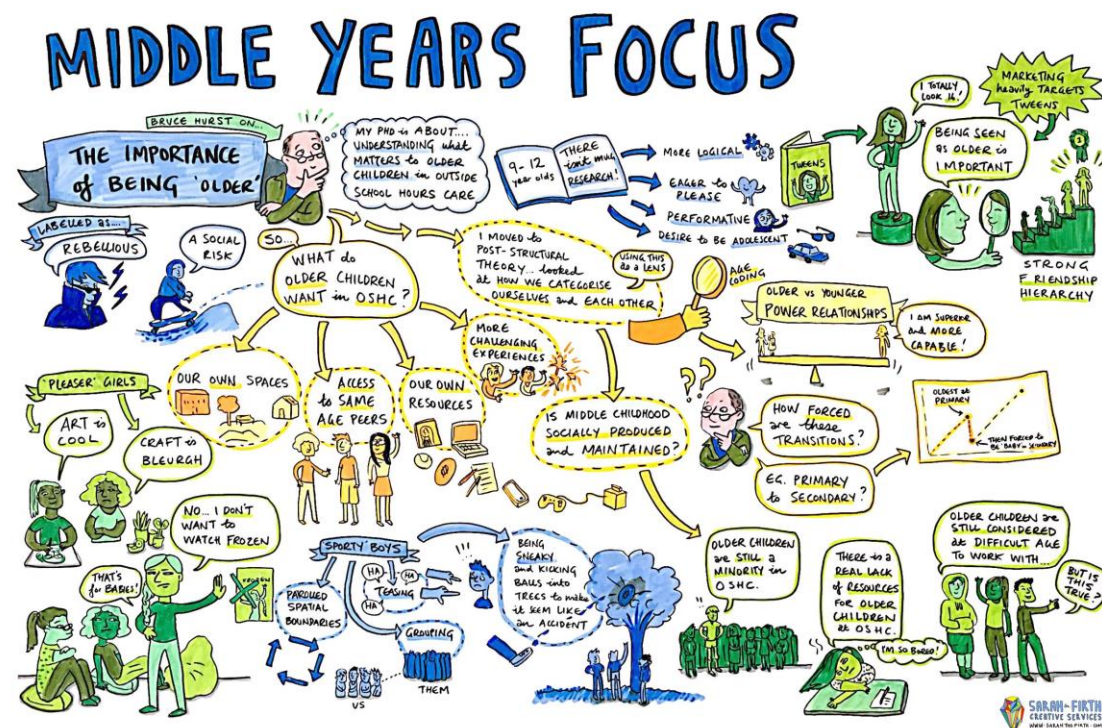 MIDDLE YEARS FOCUS
BRUCE HURST ON...
THE IMPORTANCE
of BEING 'OLDER'
MY PHD is ABOUT....
UNDERSTANDING what
MATTERS to OLDER
CHILDREN in OUTSIDE
SCHOOL HOURS CARE
9-12
year olds
THERE
isn't much
RESEARCH!
MORE LOGICAL
EAGER to
PLEASE
PERFORMATIVE
DESIRE to BE ADOLESCENT
TWEENS
I TOTALLY
LOOK 16!
MARKETING
heavily TARGETS
TWEENS
BEING SEEN
as OLDER is
IMPORTANT
1
STRONG
FRIENDSHIP
HIERARCHY
LABELLED as....
REBELLIOUS
A SOCIAL
RISK
SO...
WHAT do
OLDER CHILDREN
WANT in OSHC?
I MOVED to
POST-STRUCTURAL
THEORY... looked
at HOW WE CATEGORISE
OURSELVES and EACH OTHER
USING THIS
as a LENS
AGE
CODING
OLDER vs YOUNGER
POWER RELATIONSHIPS
I AM SUPERIOR
and MORE
CAPABLE!
OUR OWN SPACES
ACCESS
to SAME
AGE PEERS
OUR OWN
RESOURCES
MORE
CHALLENGING
EXPERIENCES
IS MIDDLE CHILDHOOD
SOCIALLY PRODUCED
and MAINTAINED?
??
HOW FORCED
are these
TRANSITIONS?
EG. PRIMARY
to SECONDARY?
OLDEST at
PRIMARY
THEN FORCED to
'PLEASER' GIRLS
ART is
COOL
CRAFT is
BLEURGH
NO... I DON'T
WANT to
WATCH FROZEN
FROZEN
THAT'S
for BABIES!
'SPORTY' BOYS
PAROLLED
SPATIAL
BOUNDARIES
HA
HA
HA
TEASING
GROUPING
US
THEM
BEING
SNEAKY
and KICKING
BALLS into
TREES to MAKE
it SEEM LIKE
an ACCIDENT
OLDER CHILDREN
are STILL a
MINORITY in
OSHC.
THERE is a
REAL LACK
of RESOURCES
FOR OLDER
CHILDREN
at OSHC.
I'M SO BORED!
OLDER CHILDREN are
STILL CONSIDERED
at DIFFICULT AGE
TO WORK WITH...
BUT IS
THIS
TRUE?
SARAH FIRTH
CREATIVE SERVICES
WWW.SARAHTHEFIRTH.COM